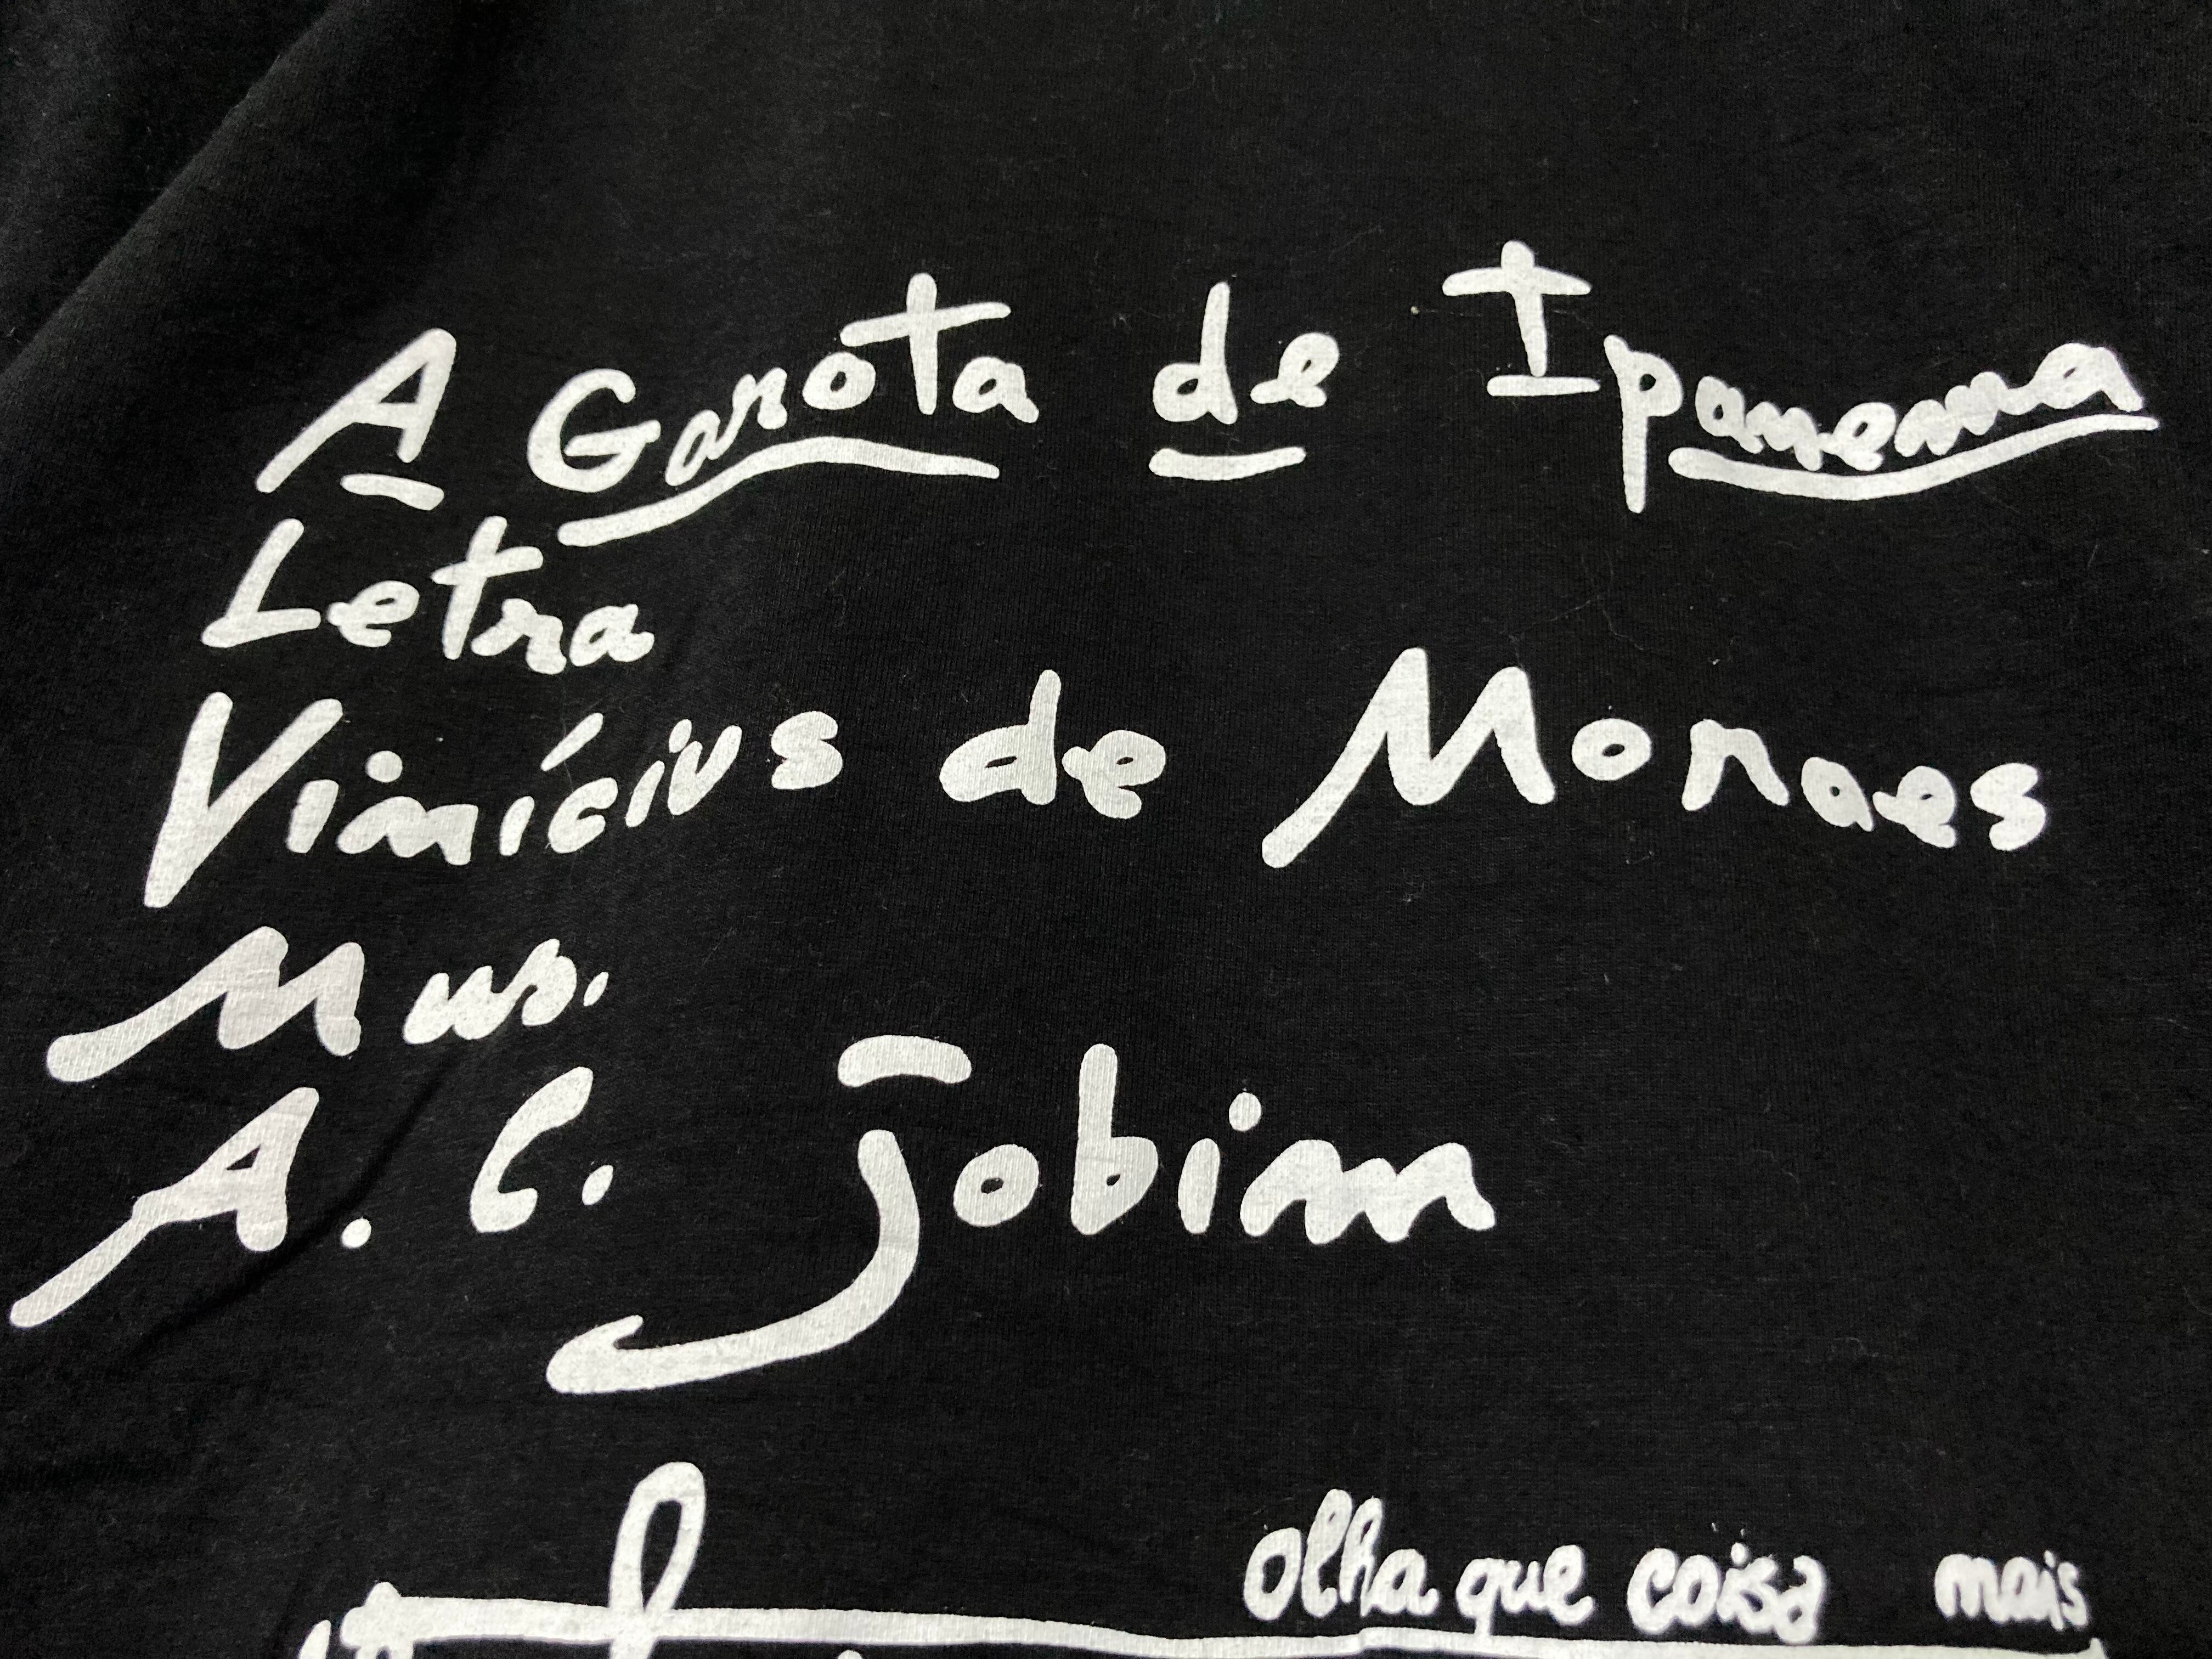 A Garota de Ipanema
Letra
Vinícius de Moraes
Mus.
A. C. Jobim
olha que coisa mais